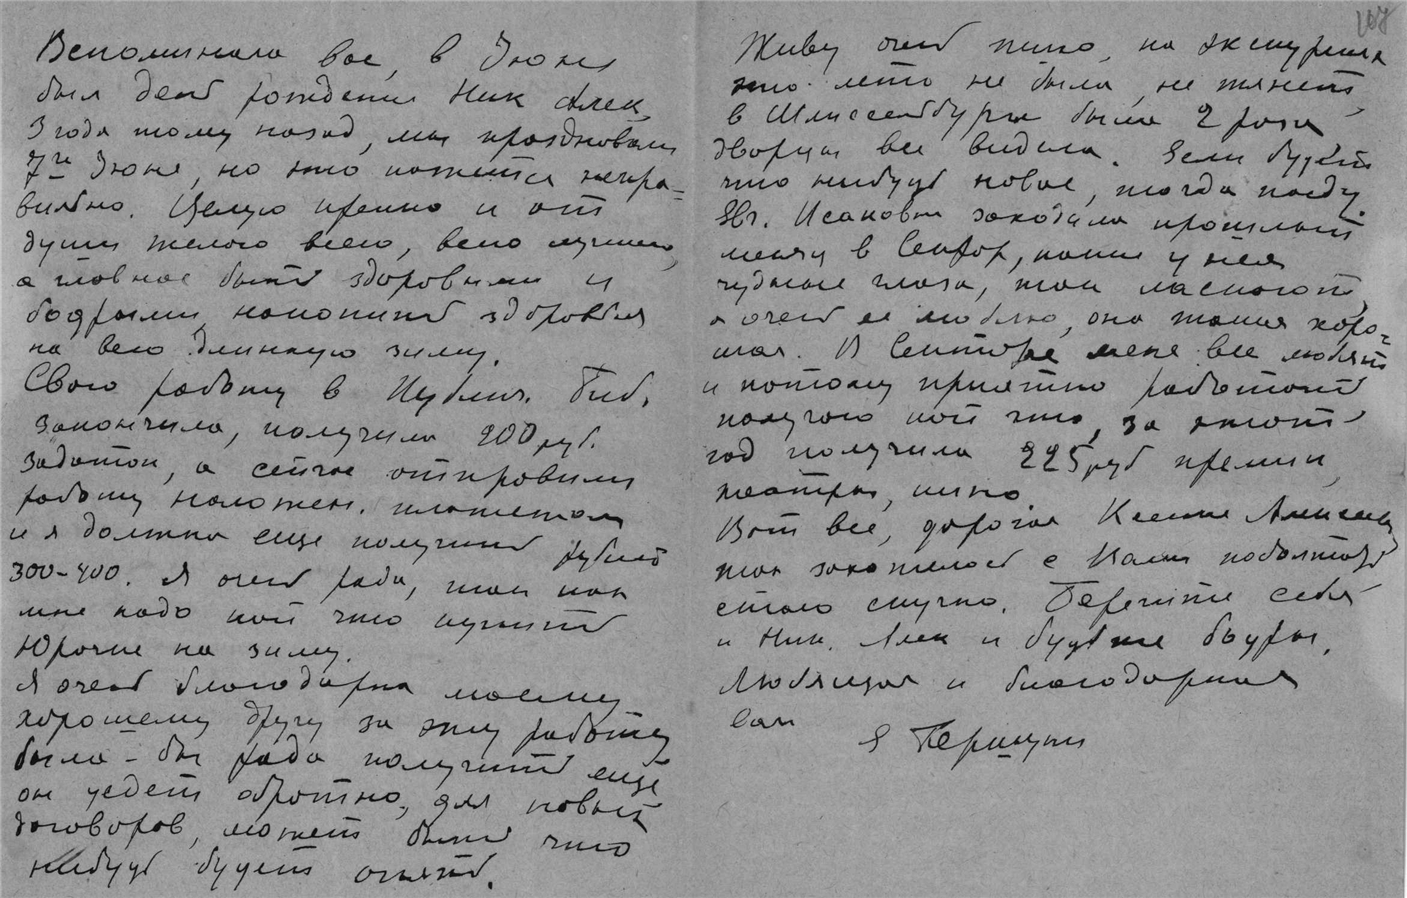 Вспоминала вас, в Июне
был день рождения Ник Алек,
3 года тому назад, мы праздновали
7го Июня, но это кажется непра=
вильно. Целую крепко и от
души желаю всего, всего лучшего,
а главное быть здоровыми и
бодрыми, накопить здоровья
на всю длинную зиму.
Свою работу в Публич. Биб.
закончила, получила 200 руб.
задаток, а сейчас отправили
работу наложен. платежом
и я должна еще получить рублей
300-400. Я очень рада, так как
мне надо кой что купить
Юрочке на зиму.
Я очень благодарна моему
хорошему другу за эту работу
была-бы рада получить еще
он уедет обратно, для новых
договоров, может быть что
нибудь будет опять.
107
Живу очень тихо, на экскурсиях
это лето не была, не тянет,
в Шлиссельбурге была 2 раза
дворцы все видела. Если будет
что нибудь новое, тогда поеду.
Ев. Исаковна заходила прошлый
месяц в Сектор, какие у нея
чудные глаза, так ласкают,
я очень ее люблю, она такая хоро=
шая. В Секторе меня все любят
и потому приятно работать
получаю кой что, за этот
год получила 225 руб премии,
театры, кино
Вот все, дорогая Ксения Алексеевна
так захотелось с Вами поболтать
стало скучно. Берегите себя
и Ник. Алек и будьте бодры.
Любящая и благодарная
Вам
Я Першуки